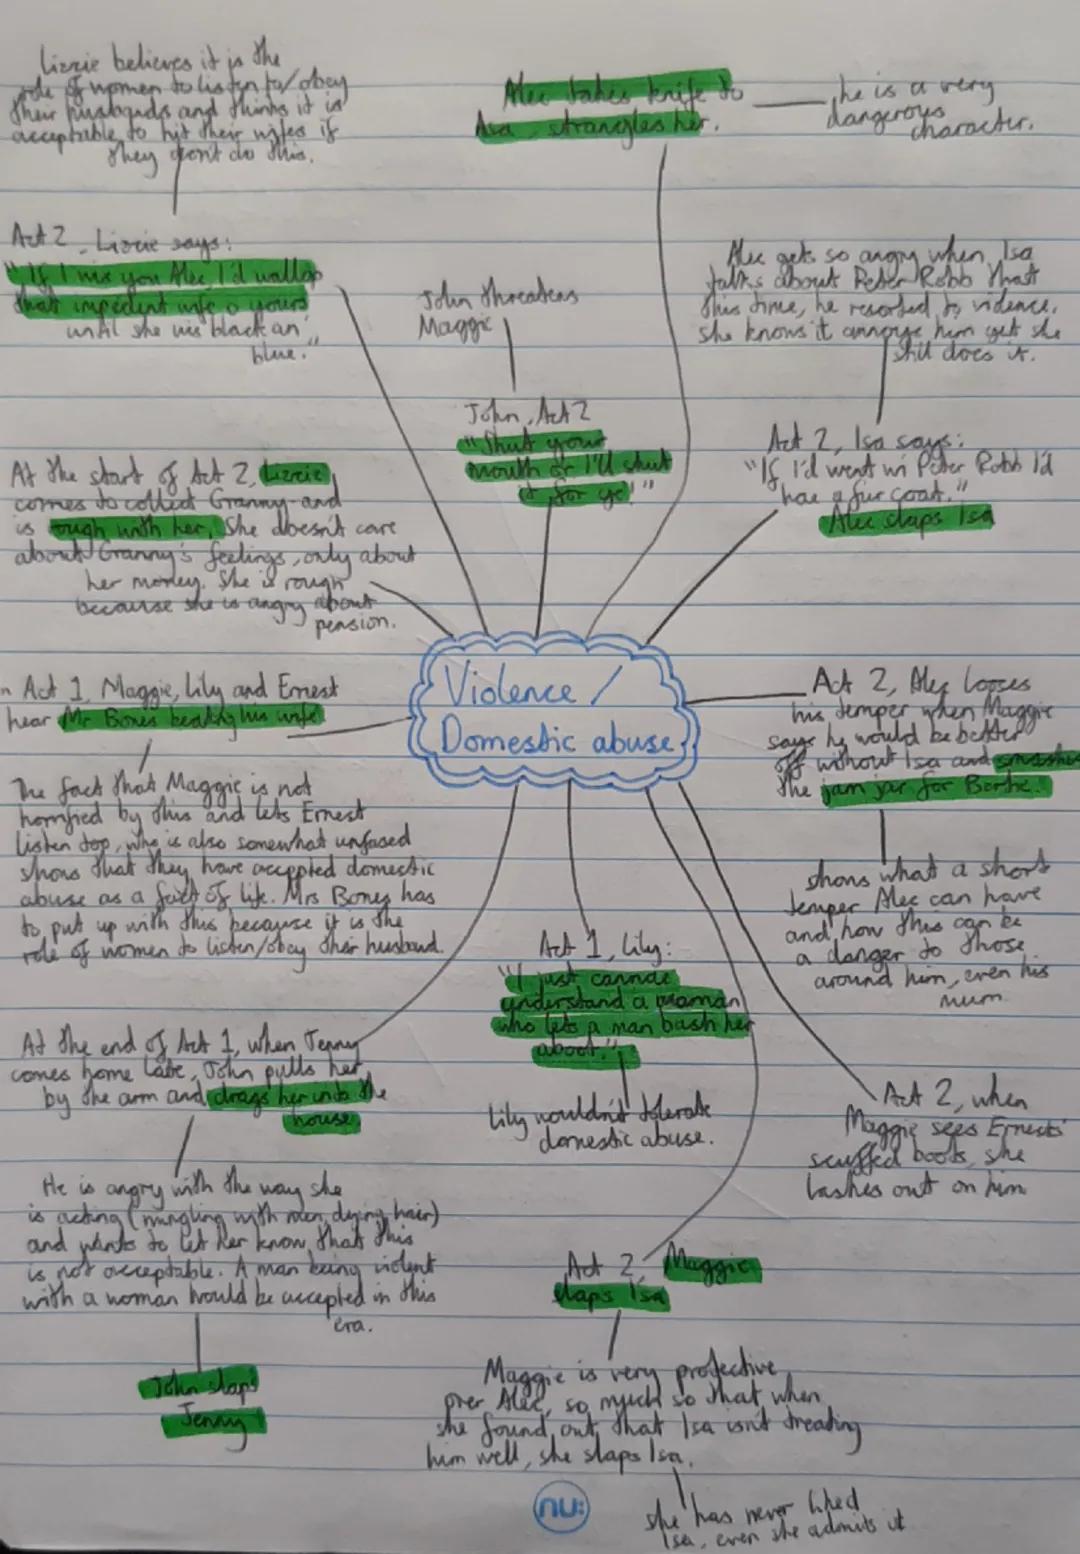 Lizzie believes it is the
role of women to listen to/obey
their husbands and thinks it is
acceptable to hit their wifes if
they don't do this.
Act 2, Lizzie says:
"If I wis you Alec, I'd wallop
that impedent wife o yours
until she wis black an'
blue."
Alec takes knife to
Isa, strangles her.
he is a very
dangerous
character.
John threatens
Maggie
John, Act 2
"Shut your
mouth or I'll shut
it for ye!"
Alec gets so angry when Isa
talks about Peter Robb that
this time, he resorted to vidence.
she knows it annoys him yet she
still does it.
Act 2, Isa says:
"If I'd went wi Peter Robb I'd
hae a fur coat."
Alec slaps Isa
At the start of Act 2, Lizzie
comes to collect Granny and
is rough with her. She doesn't care
about Granny's feelings, only about
her money. She is rough
because she is angry about
pension.
Violence /
Domestic abuse
n Act 1, Maggie, Lily and Ernest
hear Mr Bones beating his wife
The fact that Maggie is not
horrified by this and lets Ernest
listen too, who is also somewhat unfased
shows that they have accepted domestic
abuse as a fact of life. Mrs Bones has
to put up with this because it is the
role of women to listen/obey their husband.
Act 2, Alec looses
his temper when Maggie
says he would be better
off without Isa and smashes
the jam jar for Bertie.
shows what a short
temper Alec can have
and how this can be
a danger to those
around him, even his
mum
Act 1, Lily:
"I just cannae
understand a woman
who lets a man bash her
aboot."
Lily wouldn't tolerate
domestic abuse.
At the end of Act 1, when Jenny
comes home late, John pulls her
by the arm and drags her into the
house.
He is angry with the way she
is acting (mingling with men, dying hair)
and wants to let her know that this
is not acceptable. A man being violent
with a woman would be accepted in this
era.
John slaps
Jenny
Act 2, when
Maggie sees Ernests
scuffed boots, she
lashes out on him
Act 2, Maggie
slaps Isa
Maggie is very protective
over Alec, so much so that when
she found out that Isa isn't treating
him well, she slaps Isa.
she has never liked
Isa, even she admits it
nu: